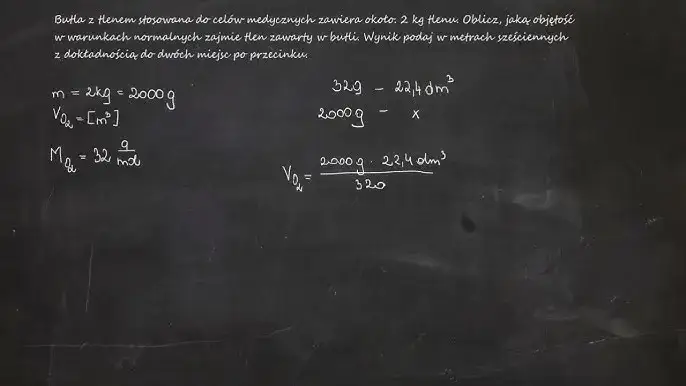 Butla z tlenem stosowana do celów medycznych zawiera około. 2 kg tlenu. Oblicz, jaką objętość
w warunkach normalnych zajmie tlen zawarty w butli. Wynik podaj w metrach sześciennych
z dokładnością do dwóch miejsc po przecinku.
m = 2kg = 2000 g
V O₂ = [m³]
M O₂ = 32 g/mol
32g – 22,4 dm³
2000g – x
V O₂ = 2000g · 22,4 dm³ / 32g